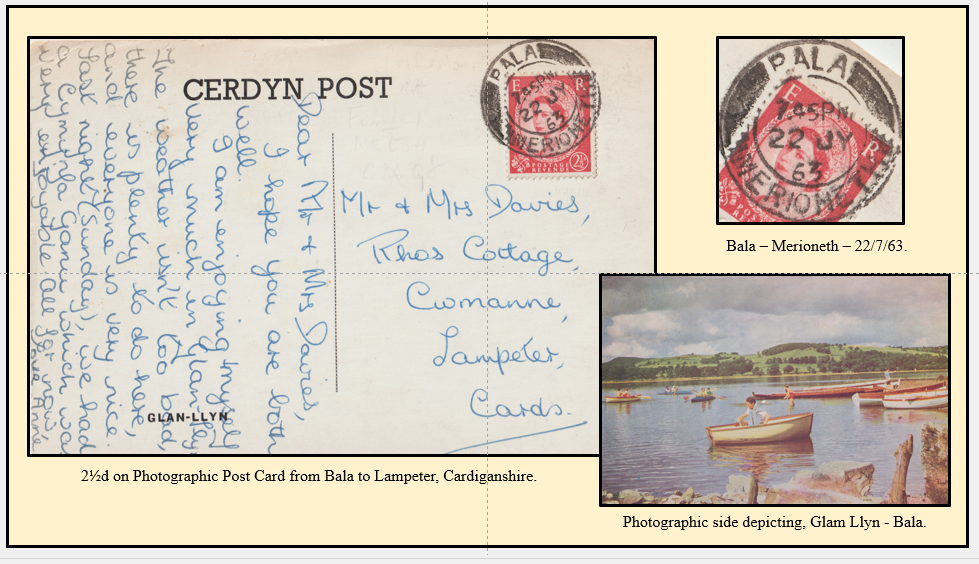 CERDYN POST
BALA
7.45PM
22 JY
63
MERIONETH
E R
POSTAGE
REVENUE
2½
Dear Mr & Mrs Davies,
I hope you are both
well.
I am enjoying myself
very much in Glan-Llyn
The weather isn't too bad,
there is plenty to do here,
and everyone is very nice.
Last night (Sunday), we had
a Cymanfa Ganu which was
very enjoyable All for now,
Love Anne
GLAN-LLYN
Mr & Mrs Davies,
Rhos Cottage,
Cwmanne,
Lampeter,
Cards.
2½d on Photographic Post Card from Bala to Lampeter, Cardiganshire.
BALA
7.45PM
22 JY
63
MERIONETH
E R
Bala – Merioneth – 22/7/63.
Photographic side depicting, Glam Llyn - Bala.